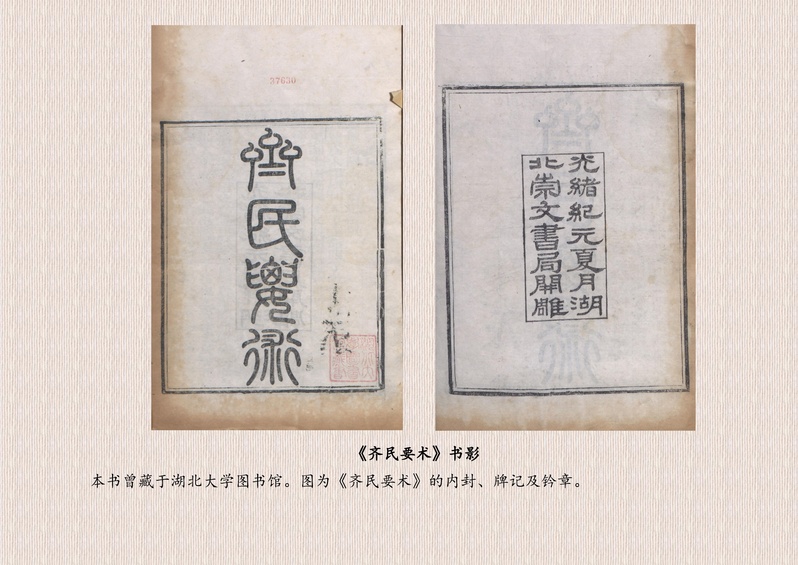 37630
齊民要術
光緒紀元夏月湖
北崇文書局開雕
《齐民要术》书影
本书曾藏于湖北大学图书馆。图为《齐民要术》的内封、牌记及钤章。